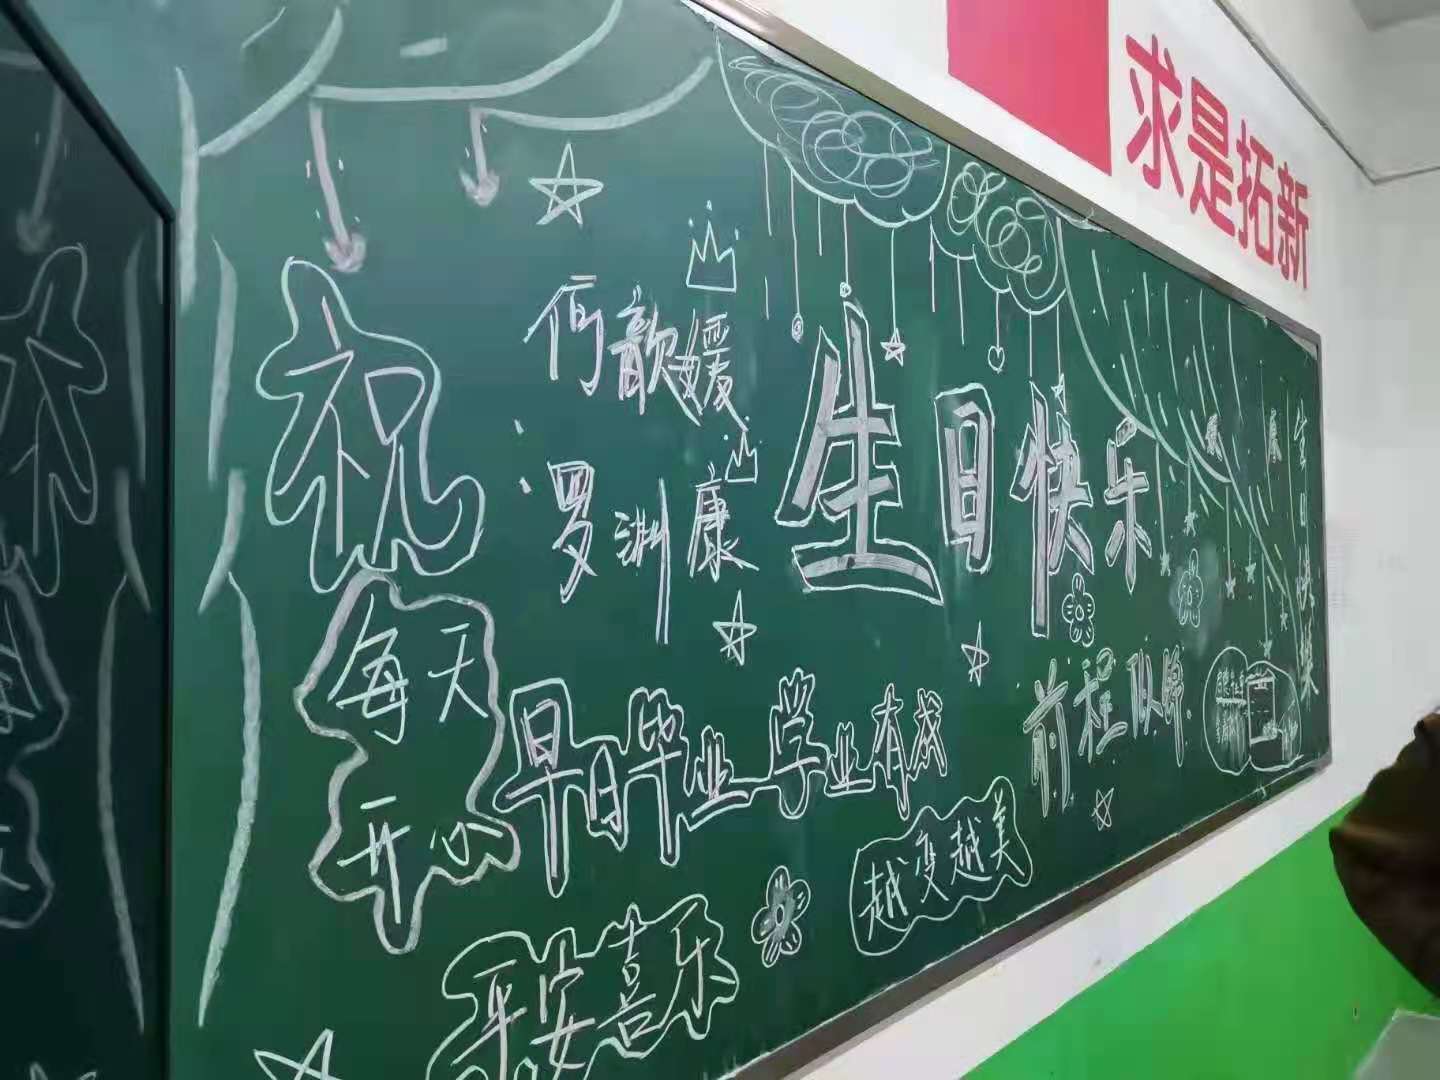 求是拓新
祝
何歆媛
罗渊康
生日快乐
每天
开心
早日毕业 学业有成
前程似锦
越变越美
平安喜乐